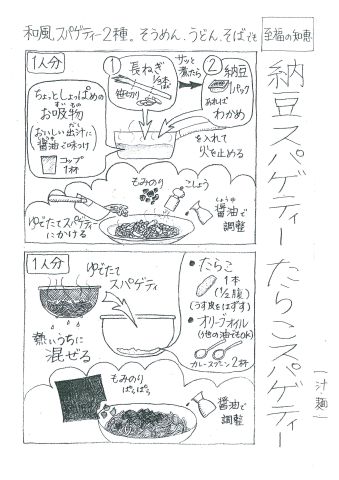 和風スパゲティー2種。そうめん、うどん、そばでも
至福の知恵
納豆スパゲティー
たらこスパゲティー
一汁麺
1人分
ちょっとしょっぱめの
お吸物
おいしい出汁に
醤油で味つけ
コップ
1杯
①
長ねぎ
1/3本
笹切り
サッと
煮たら
②
納豆
1パック
あれば
わかめ
を入れて
火を止める
もみのり
こしょう
醤油で
調整
ゆでたてスパゲティー
にかける
1人分
ゆでたて
スパゲティ
熱いうちに
混ぜる
・たらこ
1本
(1/2腹)
(うす皮をはずす)
・オリーブオイル
(他の油でもOK)
カレースプーン2杯
もみのり
ぱらぱら
醤油で
調整